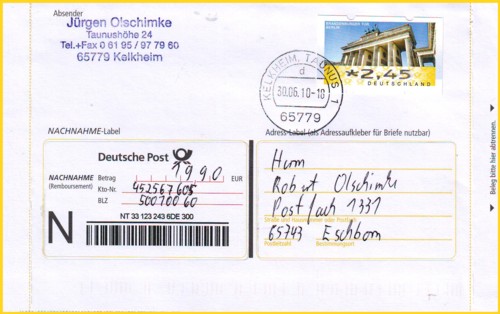 Absender
Jürgen Olschimke
Taunushöhe 24
Tel.+Fax 0 61 95 / 97 79 60
65779 Kelkheim
BRANDENBURGER TOR
BERLIN
*2,45*
DEUTSCHLAND
KELKHEIM, TAUNUS 1
d
30.06.10-18
65779
NACHNAHME-Label
Adress-Label (als Adressaufkleber für Briefe nutzbar)
Beleg bitte hier abtrennen.
Deutsche Post
NACHNAHME
(Remboursement)
Betrag 1990 EUR
Kto-Nr. 452567605
BLZ 50010060
N
NT 33 123 243 6DE 300
Herrn
Robert Olschimke
Postfach 1331
Straße und Hausnummer oder Postfach
65743 Eschborn
Postleitzahl Bestimmungsort